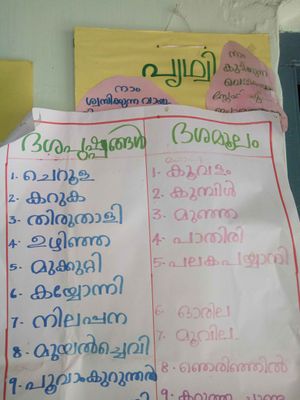 പൃഥ്വി
നാം
ശ്വസിക്കുന്ന വായു
നാം
കുടിക്കുന്ന
ദശപുഷ്പങ്ങൾ
1. ചെറൂള
2. കറുക
3. തിരുതാളി
4. ഉഴിഞ്ഞ
5. മുക്കുറ്റി
6. കയ്യോന്നി
7. നിലപ്പന
8. മുയൽച്ചെവി
9. പൂവാംകുറുന്തൽ
ദശമൂലം
1. കൂവളം
2. കുമ്പിൾ
3. മുഞ്ഞ
4. പാതിരി
5. പലകപയ്യാനി
6. ഓരില
7. മൂവില
8. ഞെരിഞ്ഞിൽ
9.